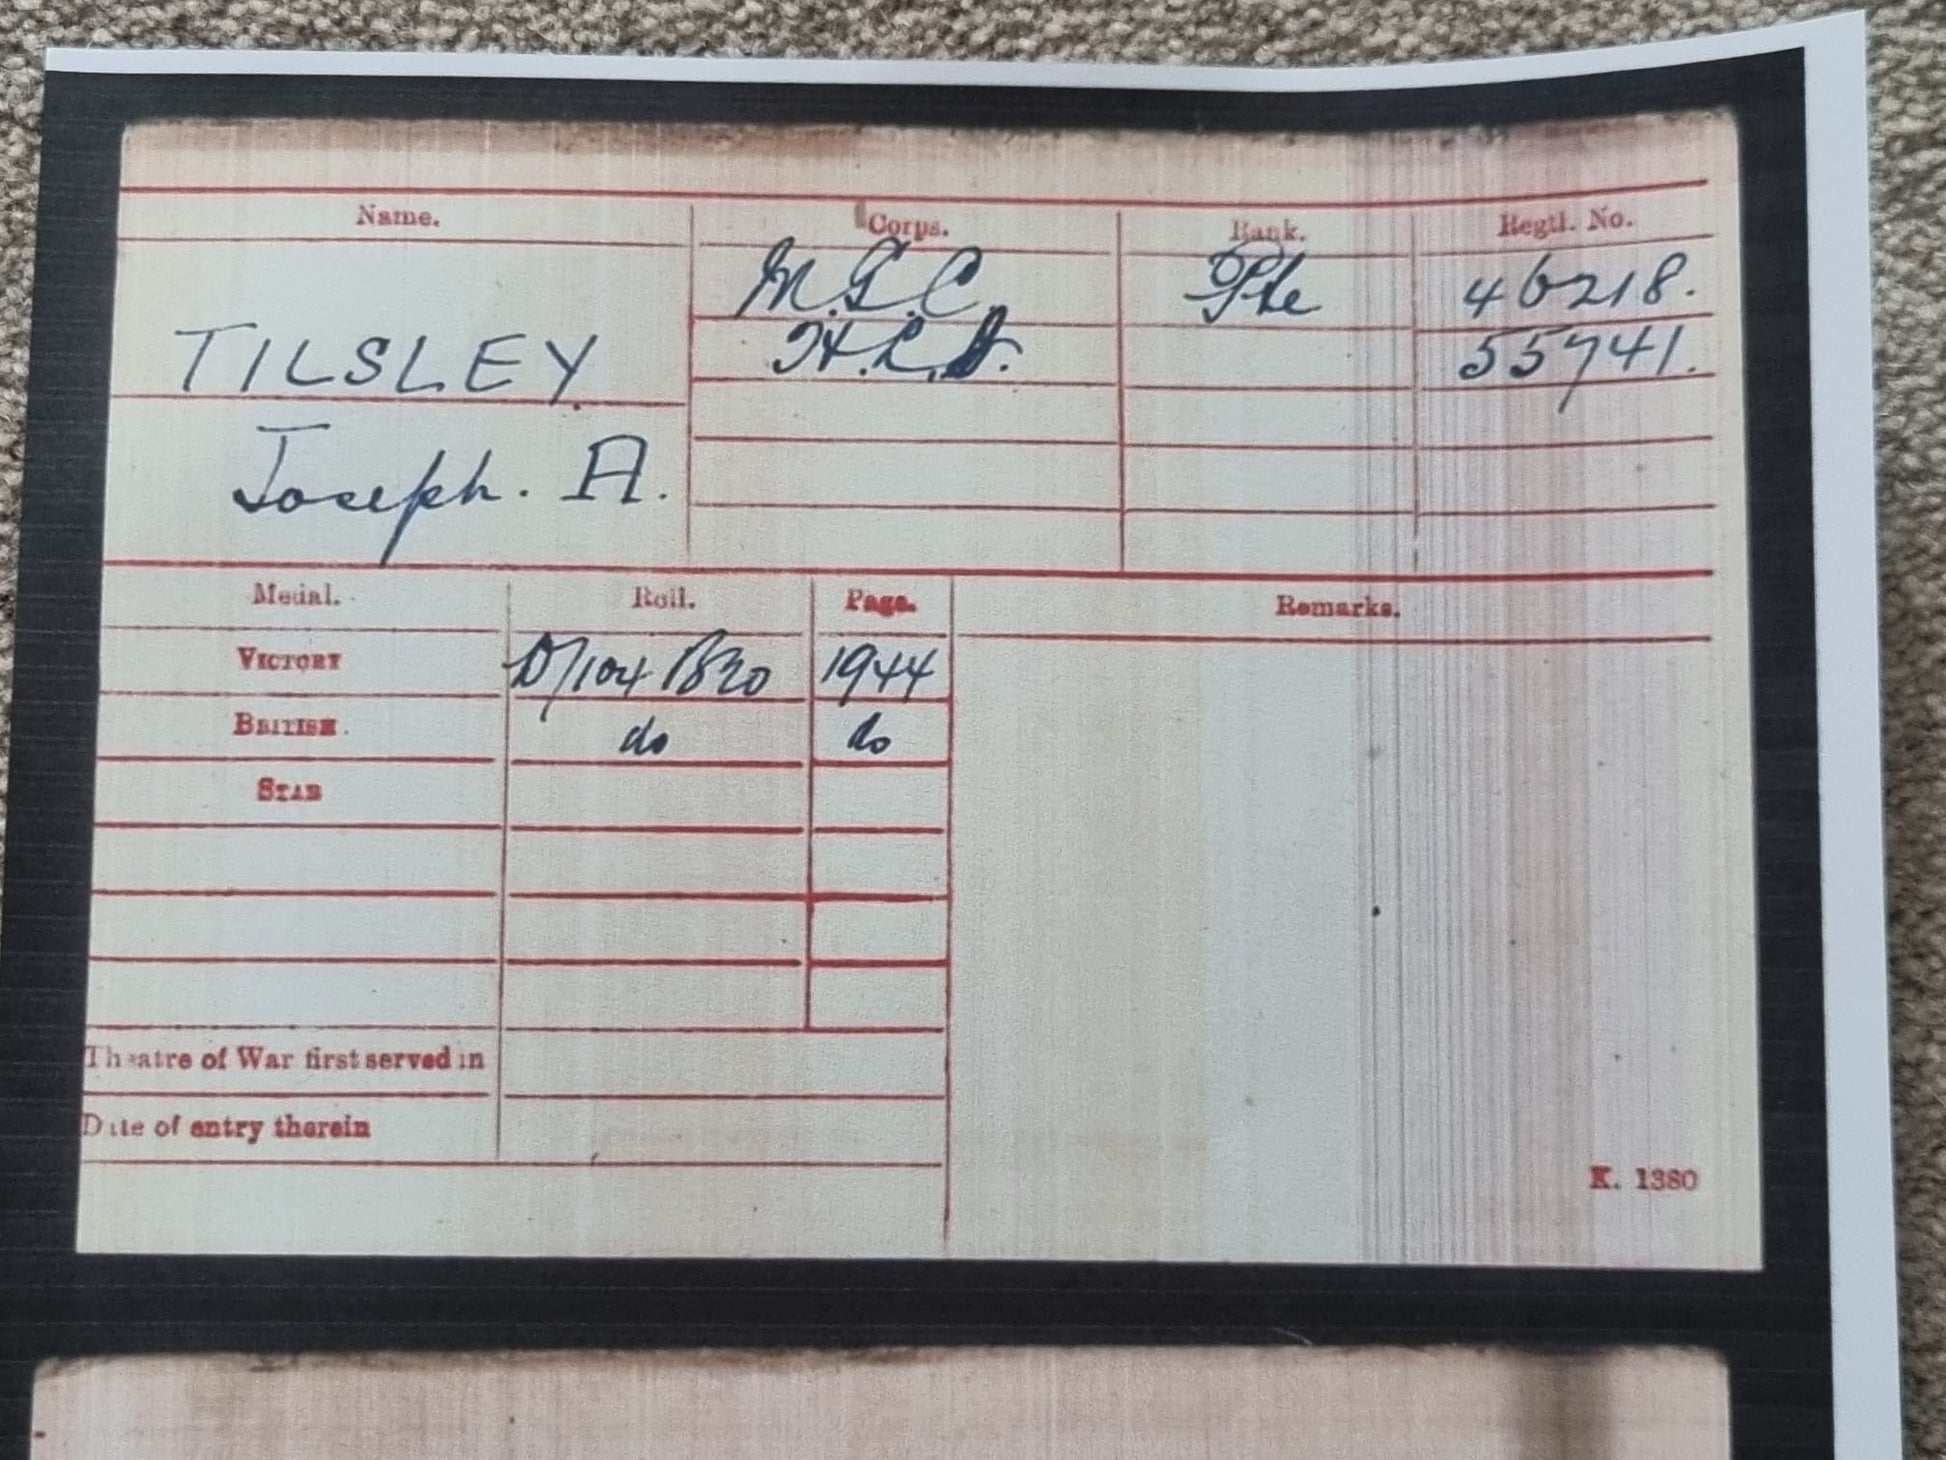 Name. Corps. Rank. Regtl. No.
M.G.C. Pte 46218.
TILSLEY H.L.I. 55741.
Joseph. A.
Medal. Roll. Page. Remarks.
VICTORY D/104 B20 1944
BRITISH. do do
STAR
Theatre of War first served in
Date of entry therein
K. 1380